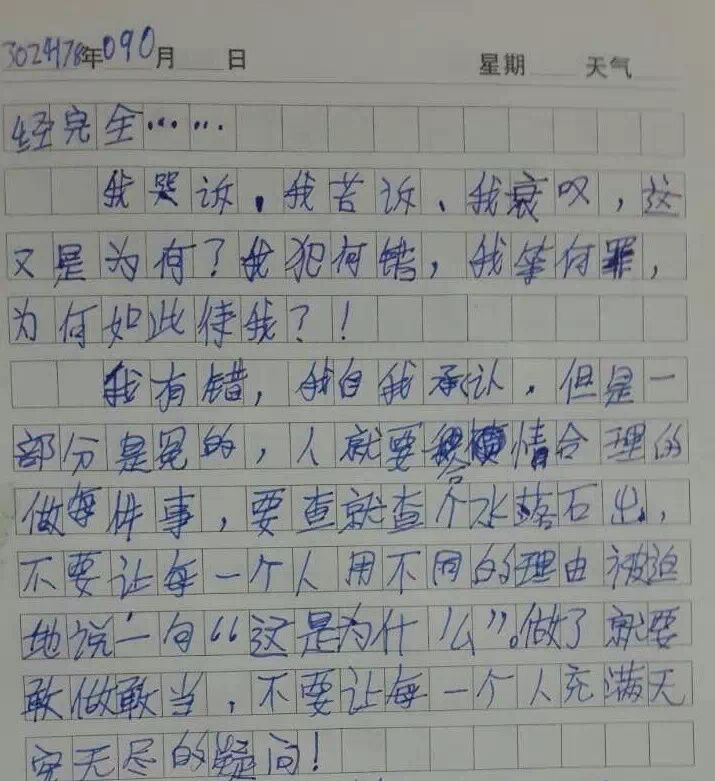 3024178年090月 日 星期 天气
经完全……
我哭诉,我苦诉、我哀叹,这
又是为何?我犯何错,我筆何罪,
为何如此待我?!
我有错,我自我承认,但是一
部分是冤的,人就要合情合理的
做每件事,要查就查个水落石出,
不要让每一个人用不同的理由被迫
地说一句“这是为什么”。做了就要
敢做敢当,不要让每一个人充满天
空无尽的疑问!